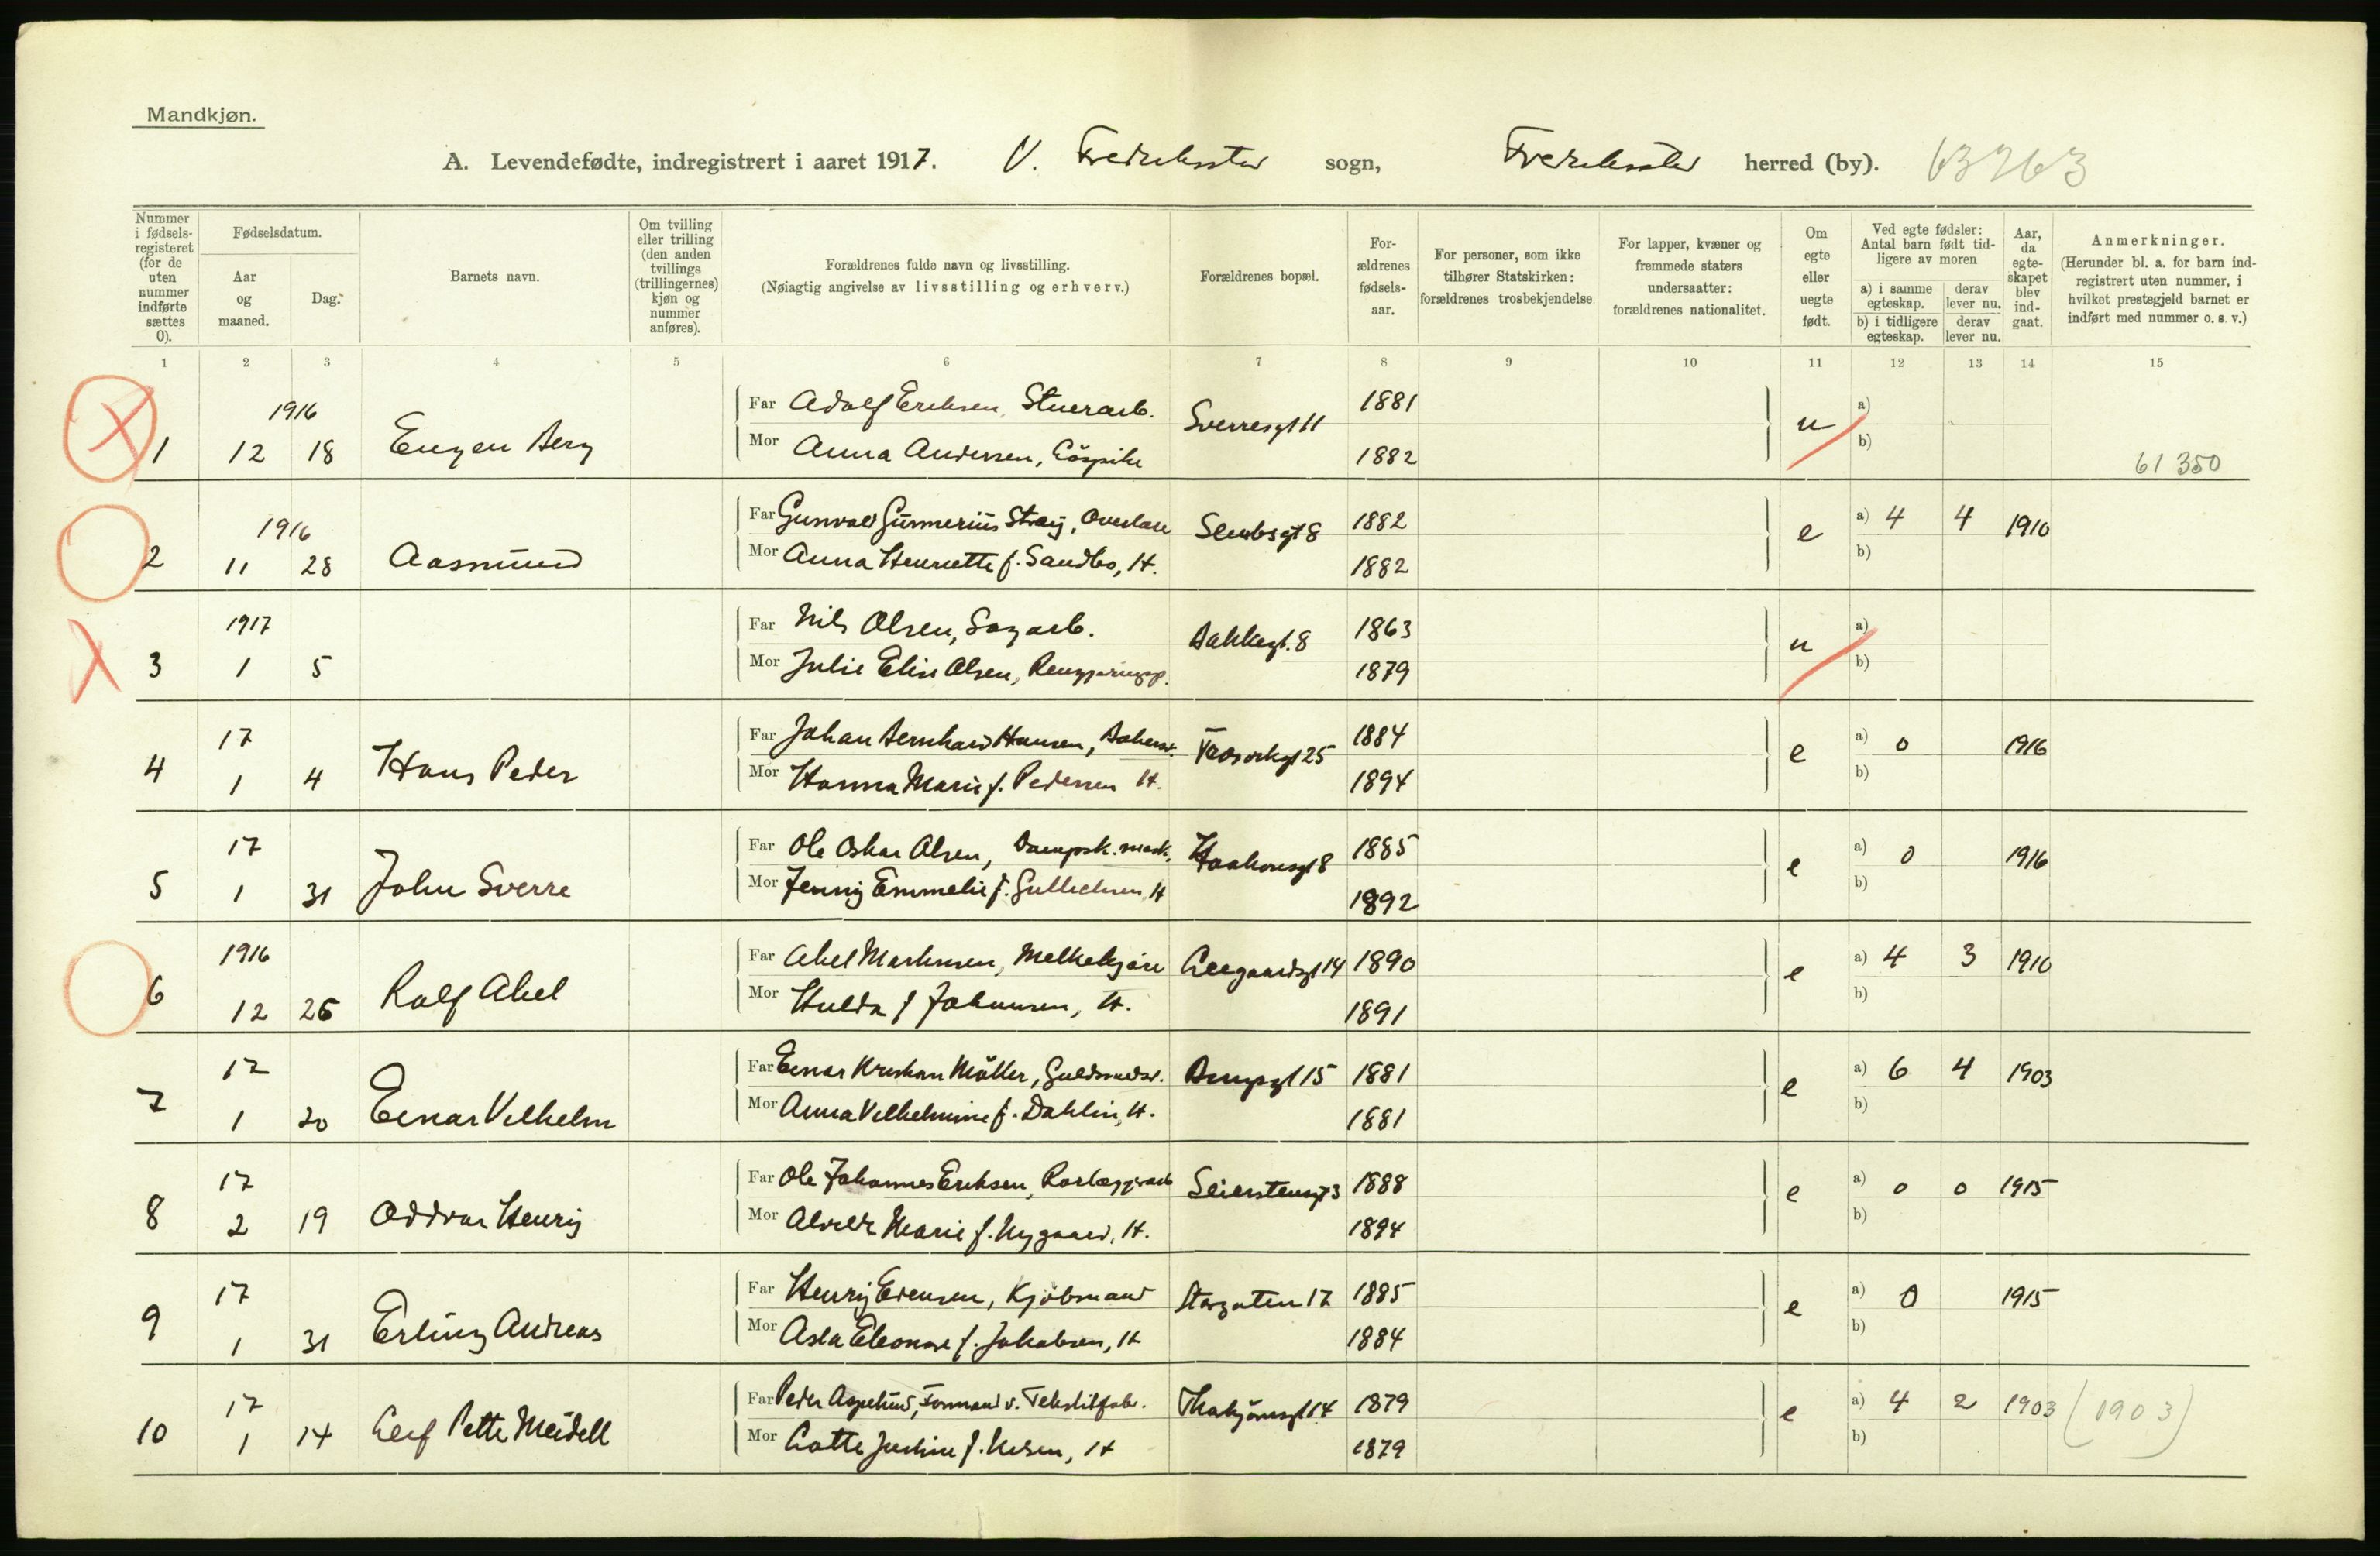 Mandkjøn.
A. Levendefødte, indregistrert i aaret 1917. V. Fredriksstad sogn, Fredriksstad herred (by). 63263
Nummer i fødsels-registeret (for de uten nummer indførte sættes 0).
Fødselsdatum.
Aar og maaned.
Dag.
Barnets navn.
Om tvilling eller trilling (den anden tvillings (trillingernes) kjøn og nummer anføres).
Forældrenes fulde navn og livsstilling.
(Nøiagtig angivelse av livsstilling og erhverv.)
Forældrenes bopæl.
For-ældrenes fødsels-aar.
For personer, som ikke tilhører Statskirken: forældrenes trosbekjendelse
For lapper, kvæner og fremmede staters undersaatter: forældrenes nationalitet.
Om egte eller uegte født.
Ved egte fødsler: Antal barn født tid-ligere av moren
a) i samme egteskap.
derav lever nu.
b) i tidligere egteskap.
derav lever nu.
Aar, da egte-skapet blev ind-gaat.
Anmerkninger.
(Herunder bl. a. for barn ind-registrert uten nummer, i hvilket prestegjeld barnet er indført med nummer o. s. v.)
1 2 3 4 5 6 7 8 9 10 11 12 13 14 15
1916 Far Adolf Eriksen, Stuerarb. Sverresgt 11 1881 u a)
1 12 18 Eugen Berg Mor Anna Andersen, 1882 b) 61350
1916 Far Gunvald Gunnerius Strøy, Sembsgt 8 1882 e a) 4 4 1910
2 11 28 Aasmund Mor Anna Henriette f. Sandbo, H. 1882 b)
1917 Far Nils Olsen, Sagarb. Bakkegt. 8 1863 u a)
3 1 5 Mor Julie Elise Olsen, 1879 b)
17 Far Johan Bernhard Hansen, Trosvikgt 25 1884 e a) 0 1916
4 1 4 Hans Peder Mor Hanna Marie f. Pedersen H. 1894 b)
17 Far Ole Oskar Olsen, Dampsk. mask. Haakonsgt 8 1885 e a) 0 1916
5 1 31 John Sverre Mor Jenny Emmelie f. Gulliksen, H 1892 b)
1916 Far Abel Markussen, Melkekjøre 14 1890 e a) 4 3 1910
6 12 26 Rolf Abel Mor Hulda f Johansen, H. 1891 b)
17 Far Einar Kristian Möller, Guldsmedsv. 15 1881 e a) 6 4 1903
7 1 20 Einar Vilhelm Mor Anna Vilhelmine f. Dahlin, H. 1881 b)
17 Far Ole Johannes Eriksen, Rørlæggerarb Seierstensgt 3 1888 e a) 0 0 1915
8 2 19 Oddvar Henry Mor Alvilde Marie f. Nygaard, H. 1894 b)
17 Far Henry Evensen, Kjøbmand Storgaten 17 1885 e a) 0 1915
9 1 31 Erling Andreas Mor Asta Eleonore f. Jakobsen, H 1884 b)
17 Far Peder Aspelund, Formand v. Tekstilfabr. 14 1879 e a) 4 2 1903 (1903)
10 1 14 Leif Petter Meidell Mor Lotte Justine f. Nilsen, H 1879 b)